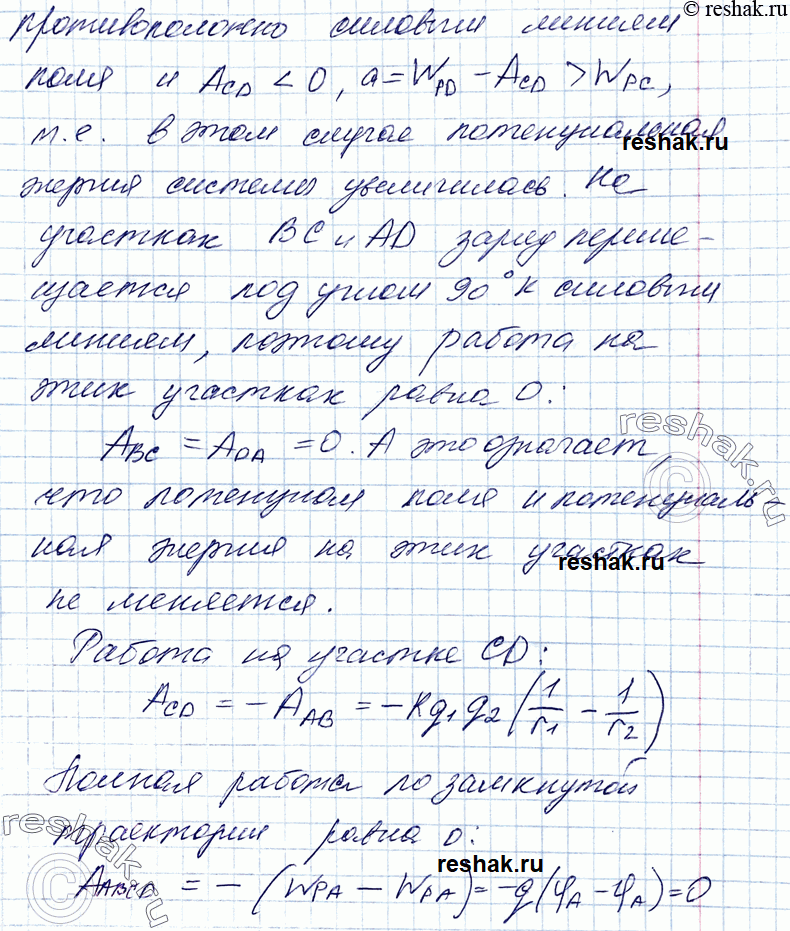 © reshak.ru
противоположно силовым линиям
поля и A_CD < 0, а = W_PD - A_CD > W_PC,
т.е. в этом случае потенциальная
reshak.ru
энергия системы увеличилась. На
участках BC и AD заряд переме-
щается под углом 90° к силовым
линиям, поэтому работа на
этих участках равна 0:
A_BC = A_DA = 0. А это означает,
что потенциал поля и потенциаль-
ная энергия на этих участках
reshak.ru
не меняется.
Работа на участке CD:
A_CD = -A_AB = -Kq₁q₂(1/r₁ - 1/r₂)
Полная работа по замкнутой
траектории равна 0:
reshak.ru
A_ABCD = -(W_PA - W_PA) = -q(φ_A - φ_A) = 0
© reshak.ru
© reshak.ru